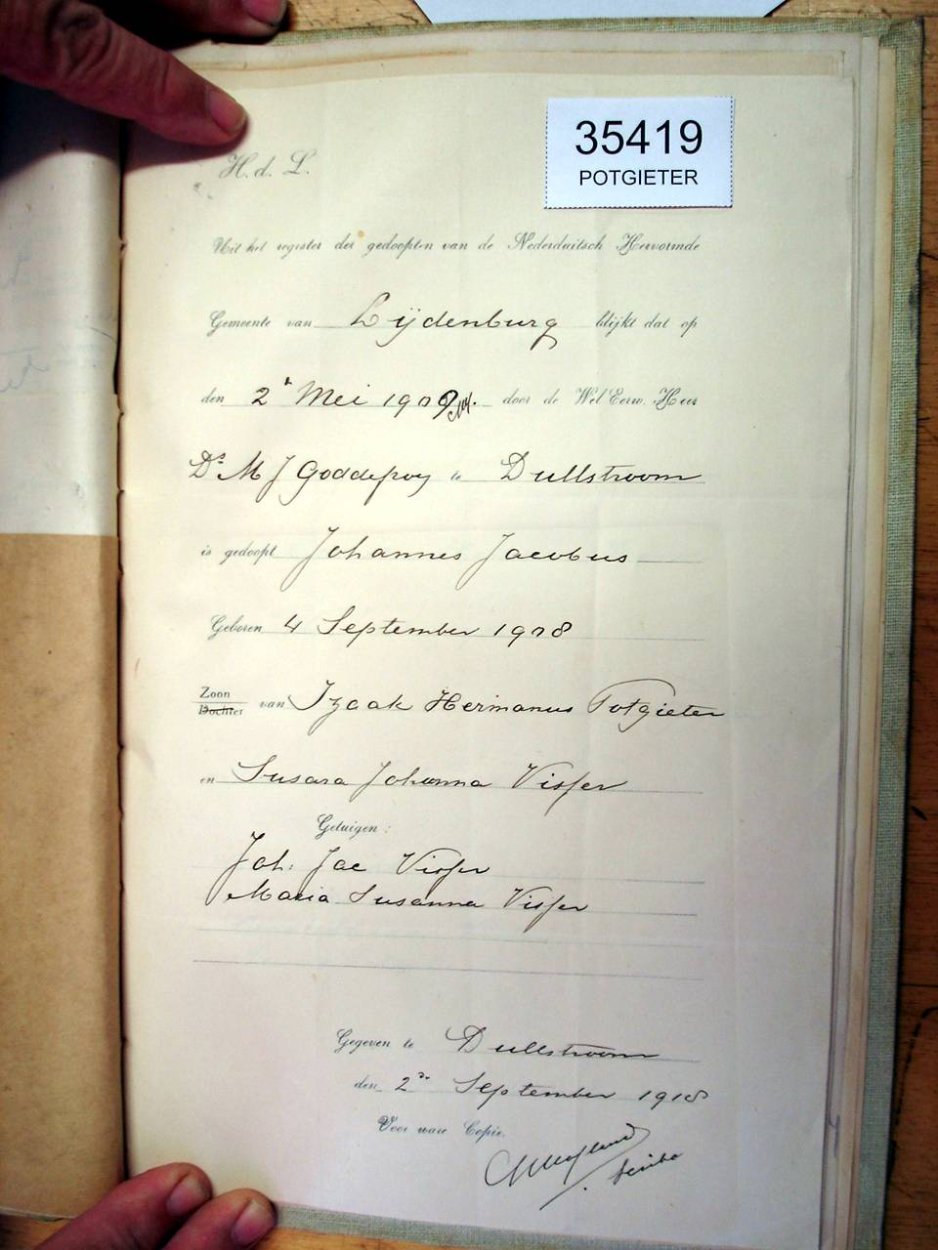 35419
POTGIETER
H. d. L.
Uit het register der gedoopten van de Nederduitsch Hervormde
Gemeente van Lijdenburg blijkt dat op
den 2e Mei 1909 door de Wel Eerw. Heer
Ds M J Goddefroy te Dullstroom
is gedoopt Johannes Jacobus
Geboren 4 September 1908
Zoon
Dochter van Izaak Hermanus Potgieter
en Susara Johanna Visser
Getuigen:
Joh. Jac Visser
Maria Susanna Visser
Gegeven te Dullstroom
den 2de September 1918
Voor ware Copie.
Scriba